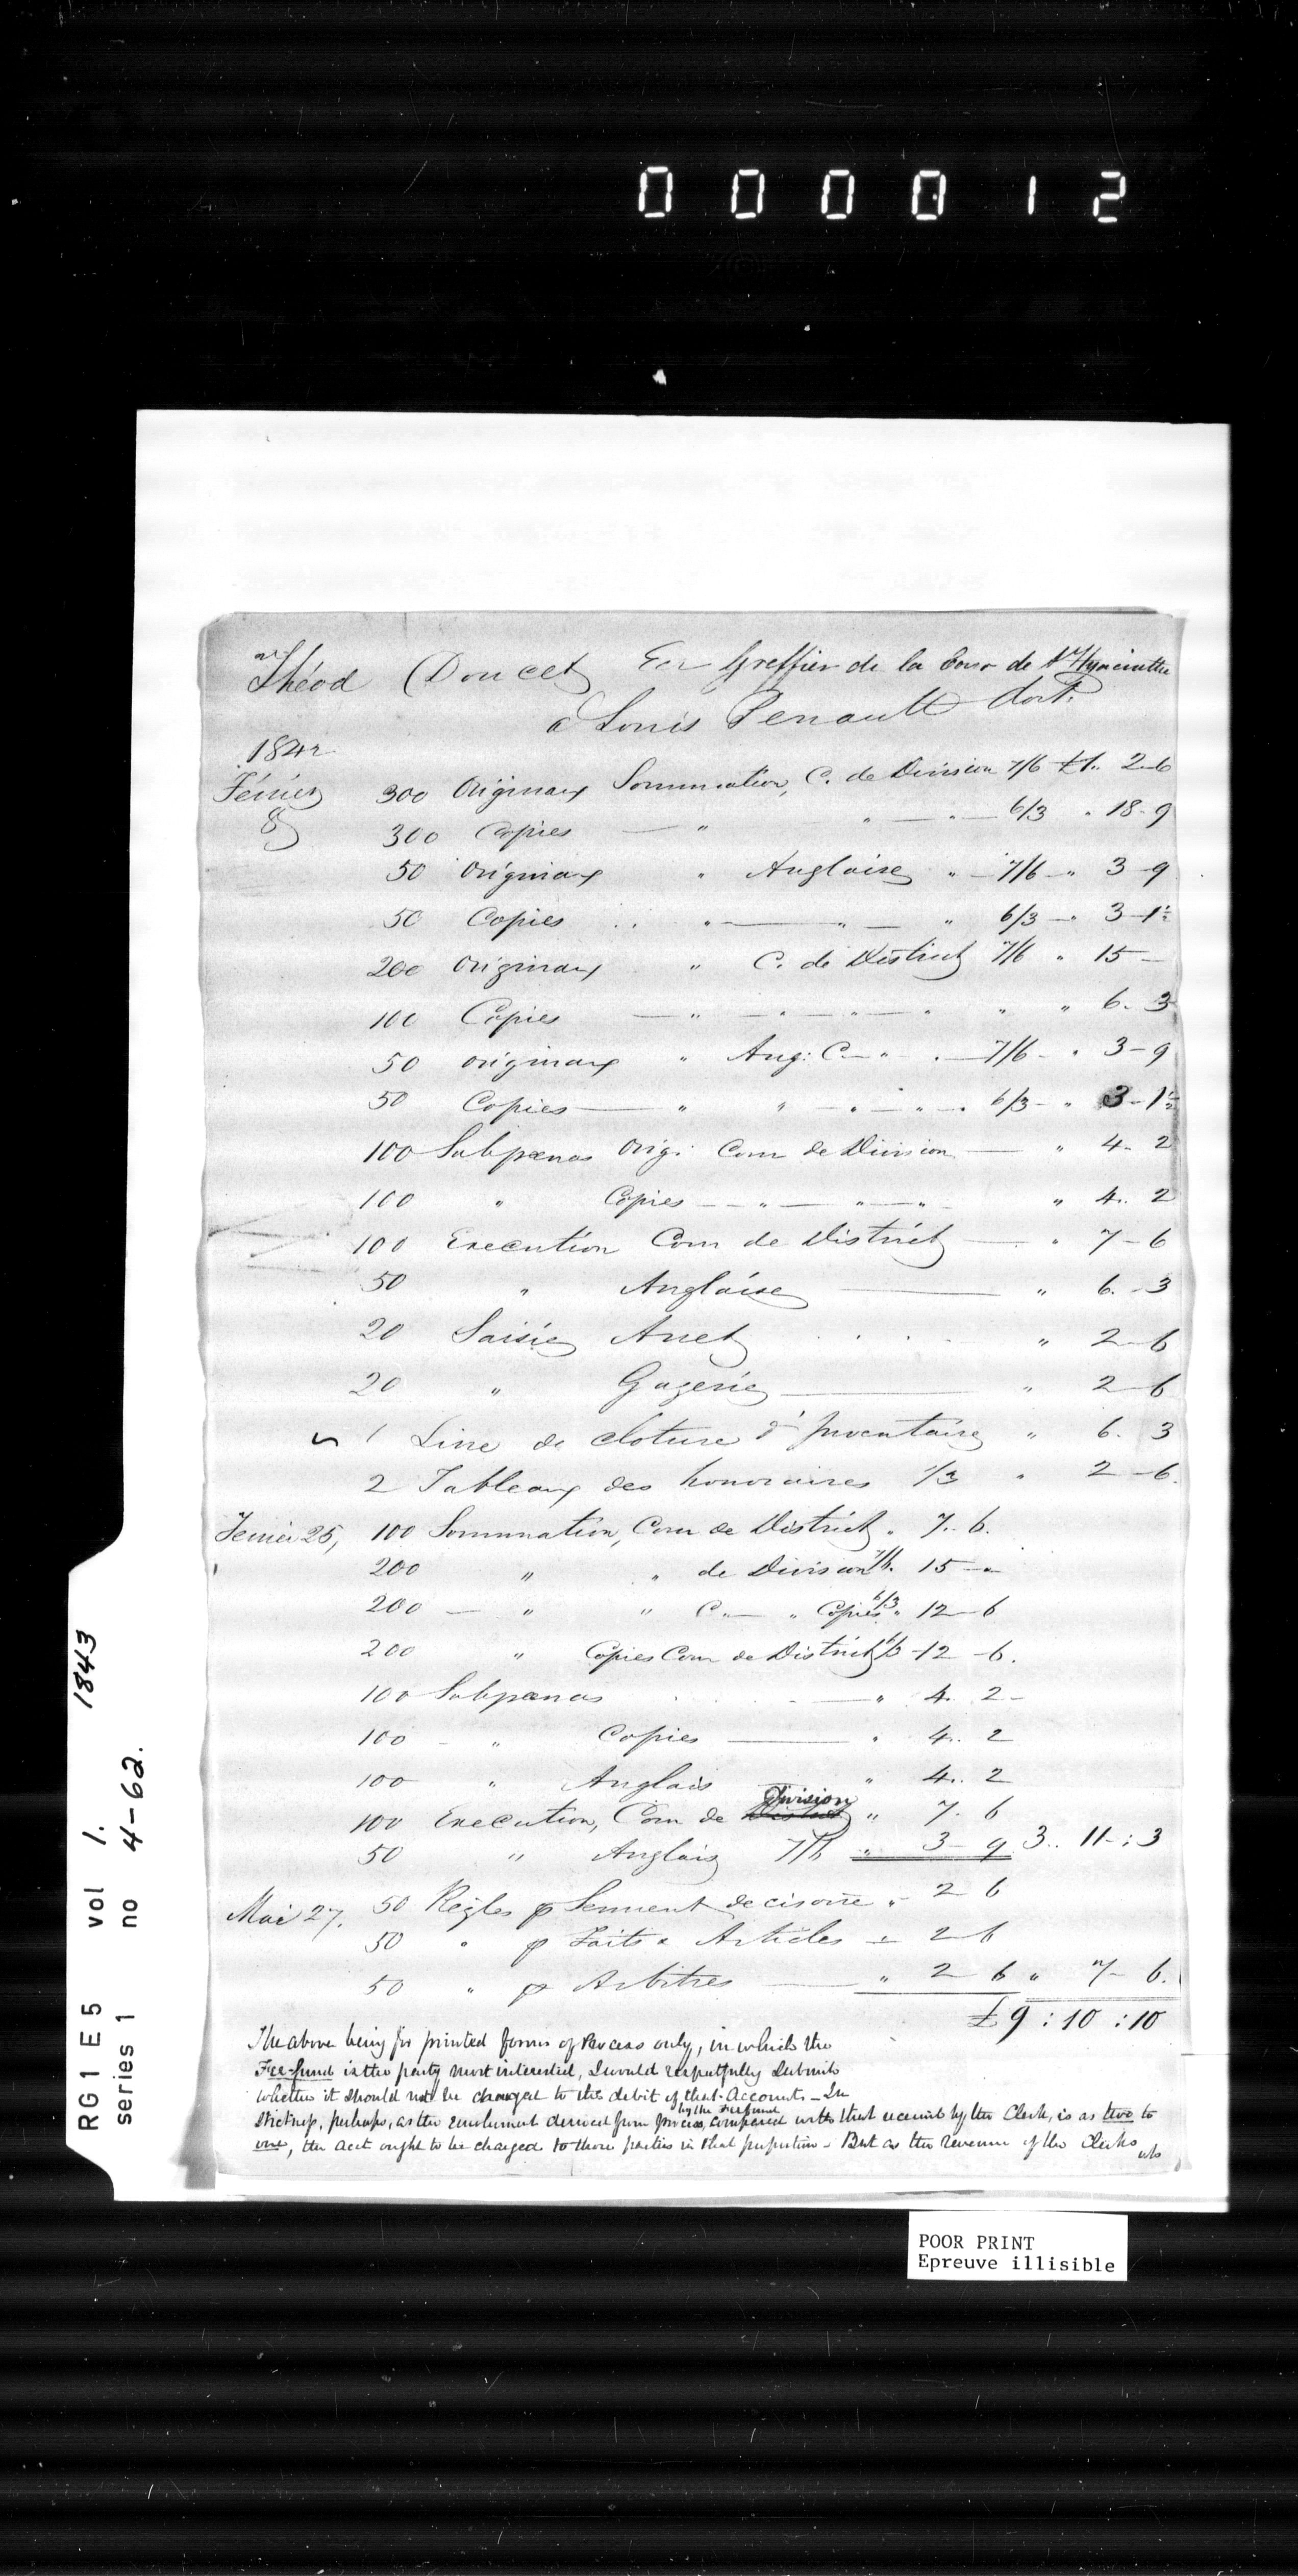 000012
Mr Théod Doucet Ecr Greffier de la Cour de St Hyacinthe
à Louis Perrault Doit
1842
Février 8 300 Originaux Sommation, C. de Division 7/6 £1.. 2-6
300 Copies — " " — " — 6/3 " 18-9
50 Originaux " Anglaise " — 7/6 — " 3-9
50 Copies " — " — " 6/3 — " 3-1½
200 Originaux " C. de District 7/6 " 15 —
100 Copies — " — " — " — " " " 6. 3
50 originaux " Ang: C. — " . — 7/6 - " 3-9
50 Copies — " " — " — " — . 6/3 - " 3-1½
100 Subpœnas Orig: Cour de Division — " 4. 2
100 " Copies — " — " — " - " 4.. 2
100 Execution Cour de District — " 7-6
50 " Anglaise — " 6. - 3
20 Saisie Arret . . . . " 2-6
20 " Gagerie — " 2-6
1 Livre de cloture d'Inventaire " 6. 3
2 Tableaux des honoraires 1/3 " 2-6.
Fevrier 25, 100 Sommation, Cour de District " 7.. 6.
200 " " de Division 7/6. 15 — "
200 — " " C. — " Copies 6/3 " 12-6
200 " Copies Cour de District 6/3 - 12-6.
100 Subpœnas . . - — " 4. 2 -
100 - " Copies — " 4.. 2
100 " Anglais — " 4.. 2
100 Execution, Cour de District Division " 7. 6
50 " Anglais 7/6 " 3-9 3.. 11-: 3
Mai 27. 50 Règles p Serment decisoire " - 2 6
50 " p Faits & Articles — 2-6
50 " p Arbitres — " 2-6 " 7-6.
£9:10:10
The above being for printed forms of Process only, in which the
Fee-fund is the party most interested, I would respectfully Submit
whether it should not be charged to the debit of that Account - In
strictness, perhaps, as the emolument derived from process by the Feefund compared with that received by the Clerk, is as two to
one, the acct ought to be charged to those parties in that proportion - But as the revenue of the Clerks
RG1 E5 vol 1. 1843
series 1 no 4-62.
POOR PRINT
Epreuve illisible